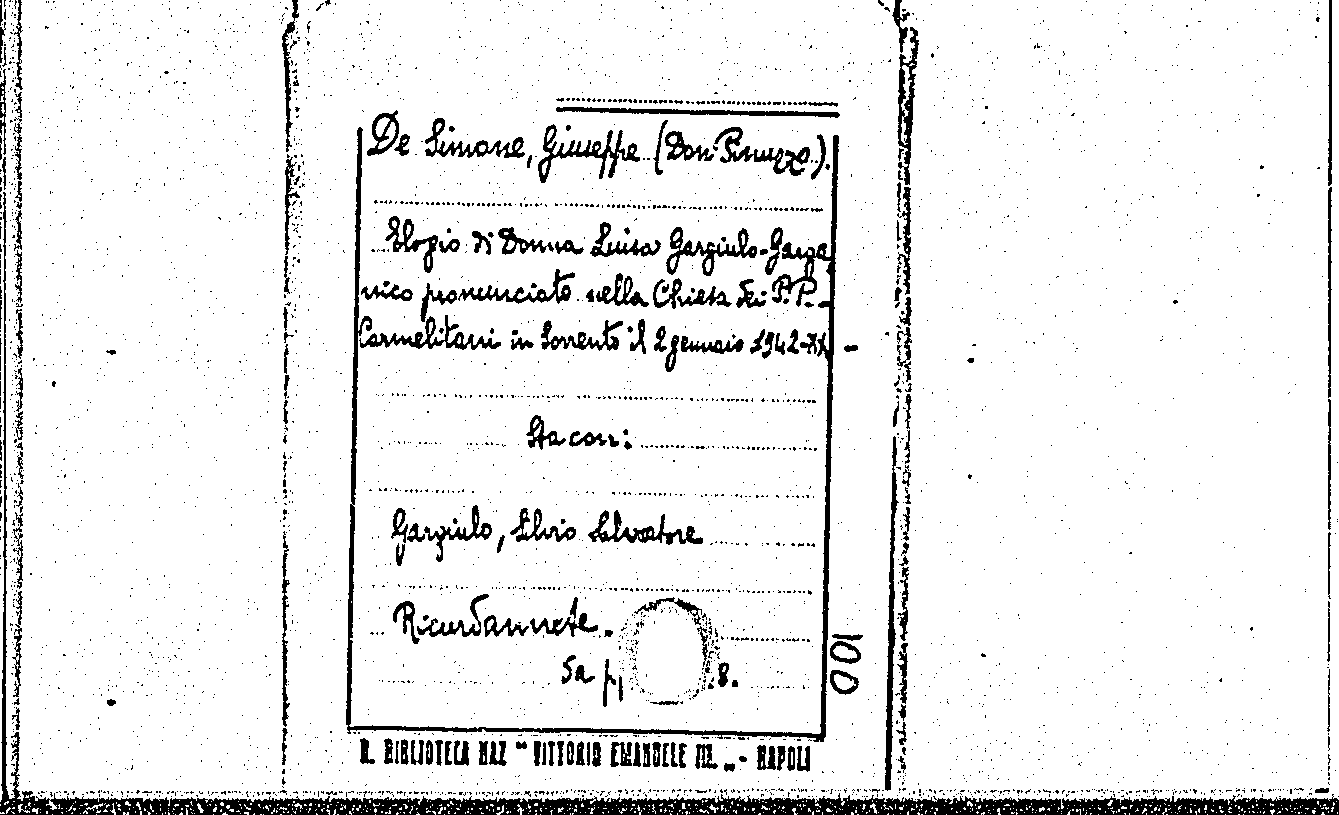 De Simone, Giuseppe (Don Pinuzzo).
Elogio di Donna Luisa Gargiulo-Garga
nico pronunciato nella Chiesa dei P.P.-
Carmelitani in Sorrento il 2 gennaio 1942-XX -
Sta con:
Gargiulo, Silvio Salvatore
Ricurdannete.
5a p. .8.
100
R. BIBLIOTECA NAZ "VITTORIO EMANUELE III„ - NAPOLI